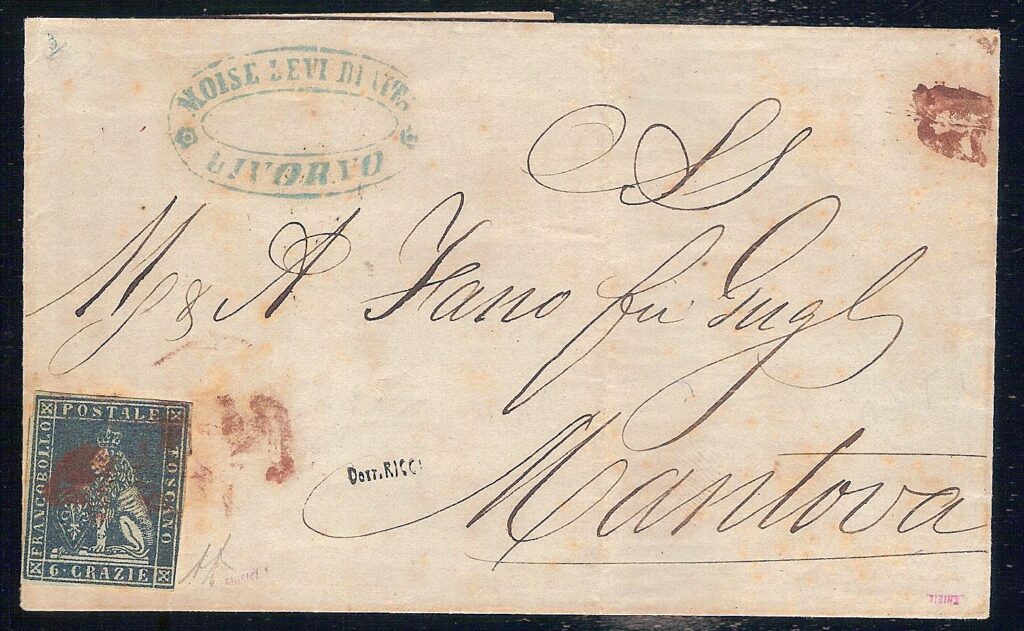 MOISE LEVI DI VITA
LIVORNO
SS
M & A Fano fu Gugl
Mantova
FRANCOBOLLO
POSTALE
TOSCANO
6·CRAZIE
Dott. RICCI